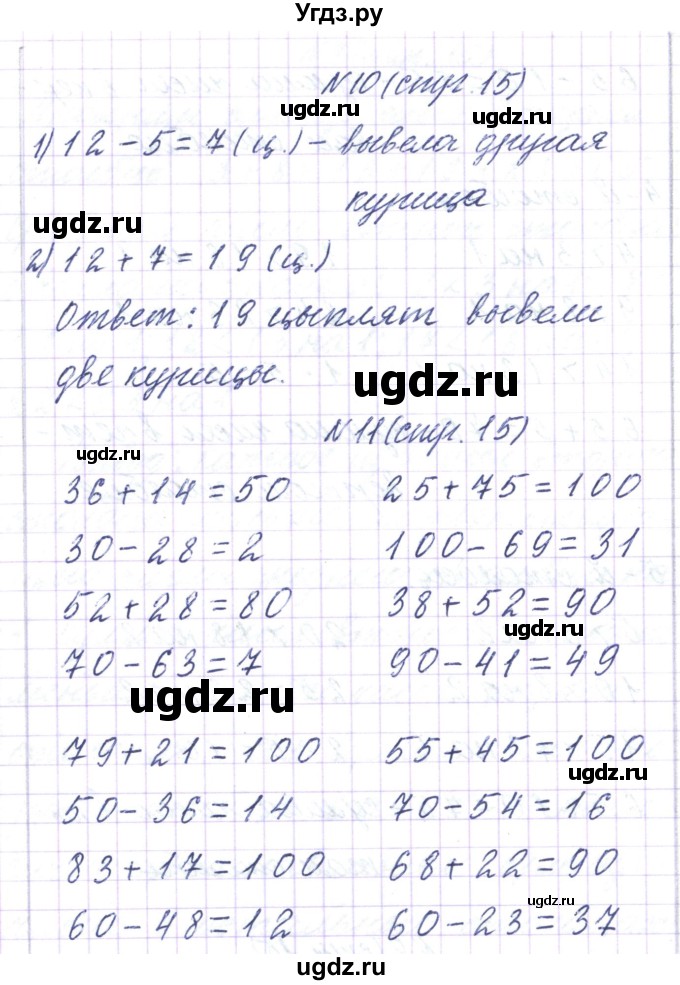 Угдз.ру
N10 (стр. 15)
1) 12 - 5 = 7 (ц.) - вывела другая
курица
ugdz.ru
2) 12 + 7 = 19 (ц.)
Ответ: 19 цыплят вывели
две курицы.
ugdz.ru
N11 (стр. 15)
ugdz.ru
36 + 14 = 50 25 + 75 = 100
30 - 28 = 2 100 - 69 = 31
52 + 28 = 80 38 + 52 = 90
ugdz.ru
70 - 63 = 7 90 - 41 = 49
ugdz.ru
79 + 21 = 100 55 + 45 = 100
ugdz.ru
50 - 36 = 14 70 - 54 = 16
83 + 17 = 100 68 + 22 = 90
ugdz.ru
60 - 48 = 12 60 - 23 = 37
ugdz.ru